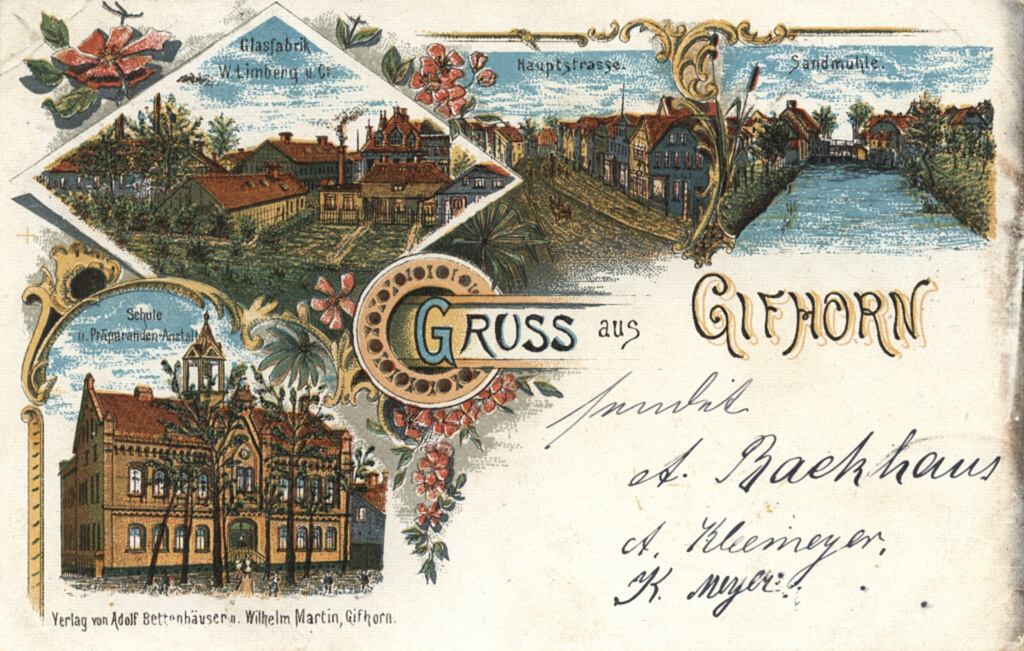 Glasfabrik
W. Limberg u. Co
Hauptstrasse.
Sandmühle.
Schule
u. Präparanden-Anstalt
GRUSS aus GIFHORN
sendet
A. Backhaus
A. Kleemeyer.
K. Meyer.
Verlag von Adolf Bettenhäuser u. Wilhelm Martin, Gifhorn.